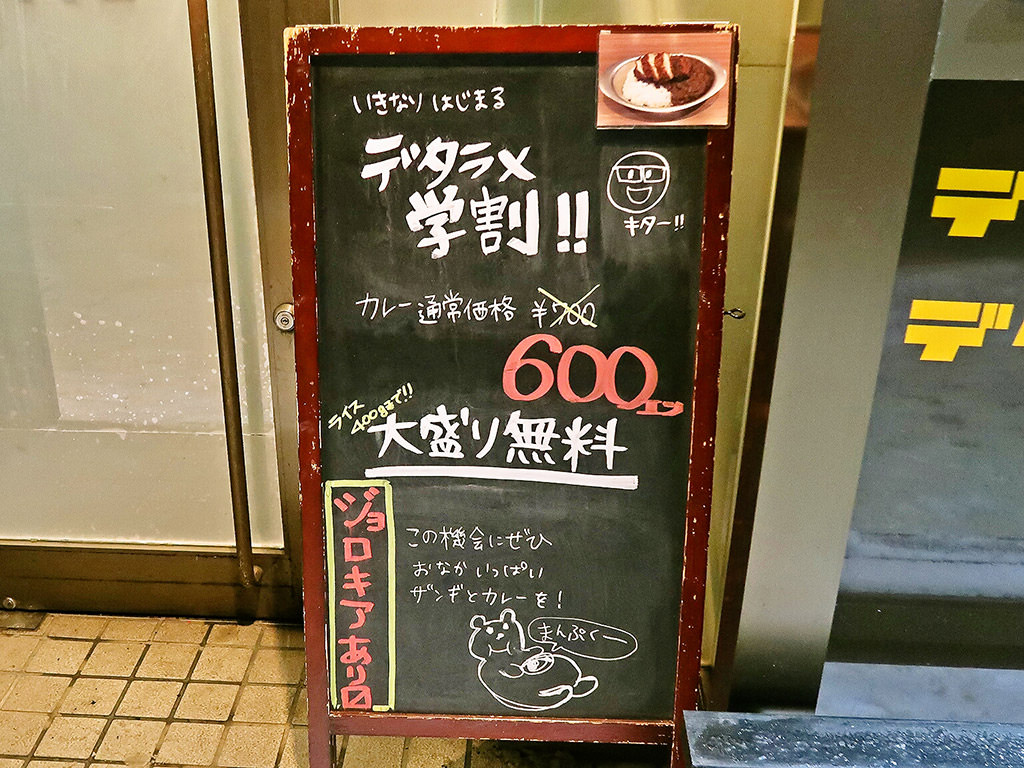 いきなり はじまる
デタラメ
学割!!
キター!!
カレー通常価格 ¥700
600エン
ライス
400gまで!!
大盛り無料
ジョロキアあり〼
この機会にぜひ
おなか いっぱい
ザンギとカレーを!
まんぷくー
デ
デ